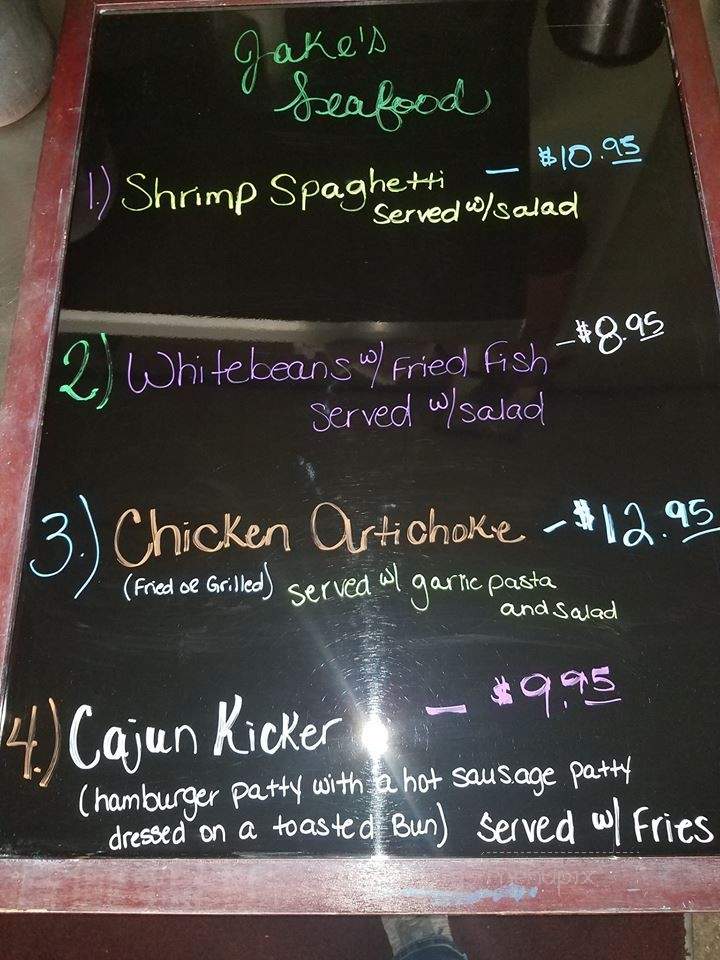 Jake's
Seafood
1.) Shrimp Spaghetti — $10.95
Served w/salad
2.) Whitebeans w/ Fried Fish - $8.95
Served w/salad
3.) Chicken Artichoke - $12.95
(Fried or Grilled) served w/ garlic pasta
and salad
4.) Cajun Kicker — $9.95
(hamburger patty with a hot sausage patty
dressed on a toasted Bun) served w/ Fries
menupix